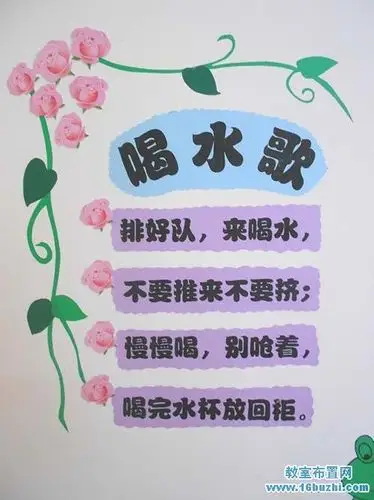 喝水歌
排好队，来喝水，
不要推来不要挤；
慢慢喝，别呛着，
喝完水杯放回柜。
教室布置网
www.16buzhi.com